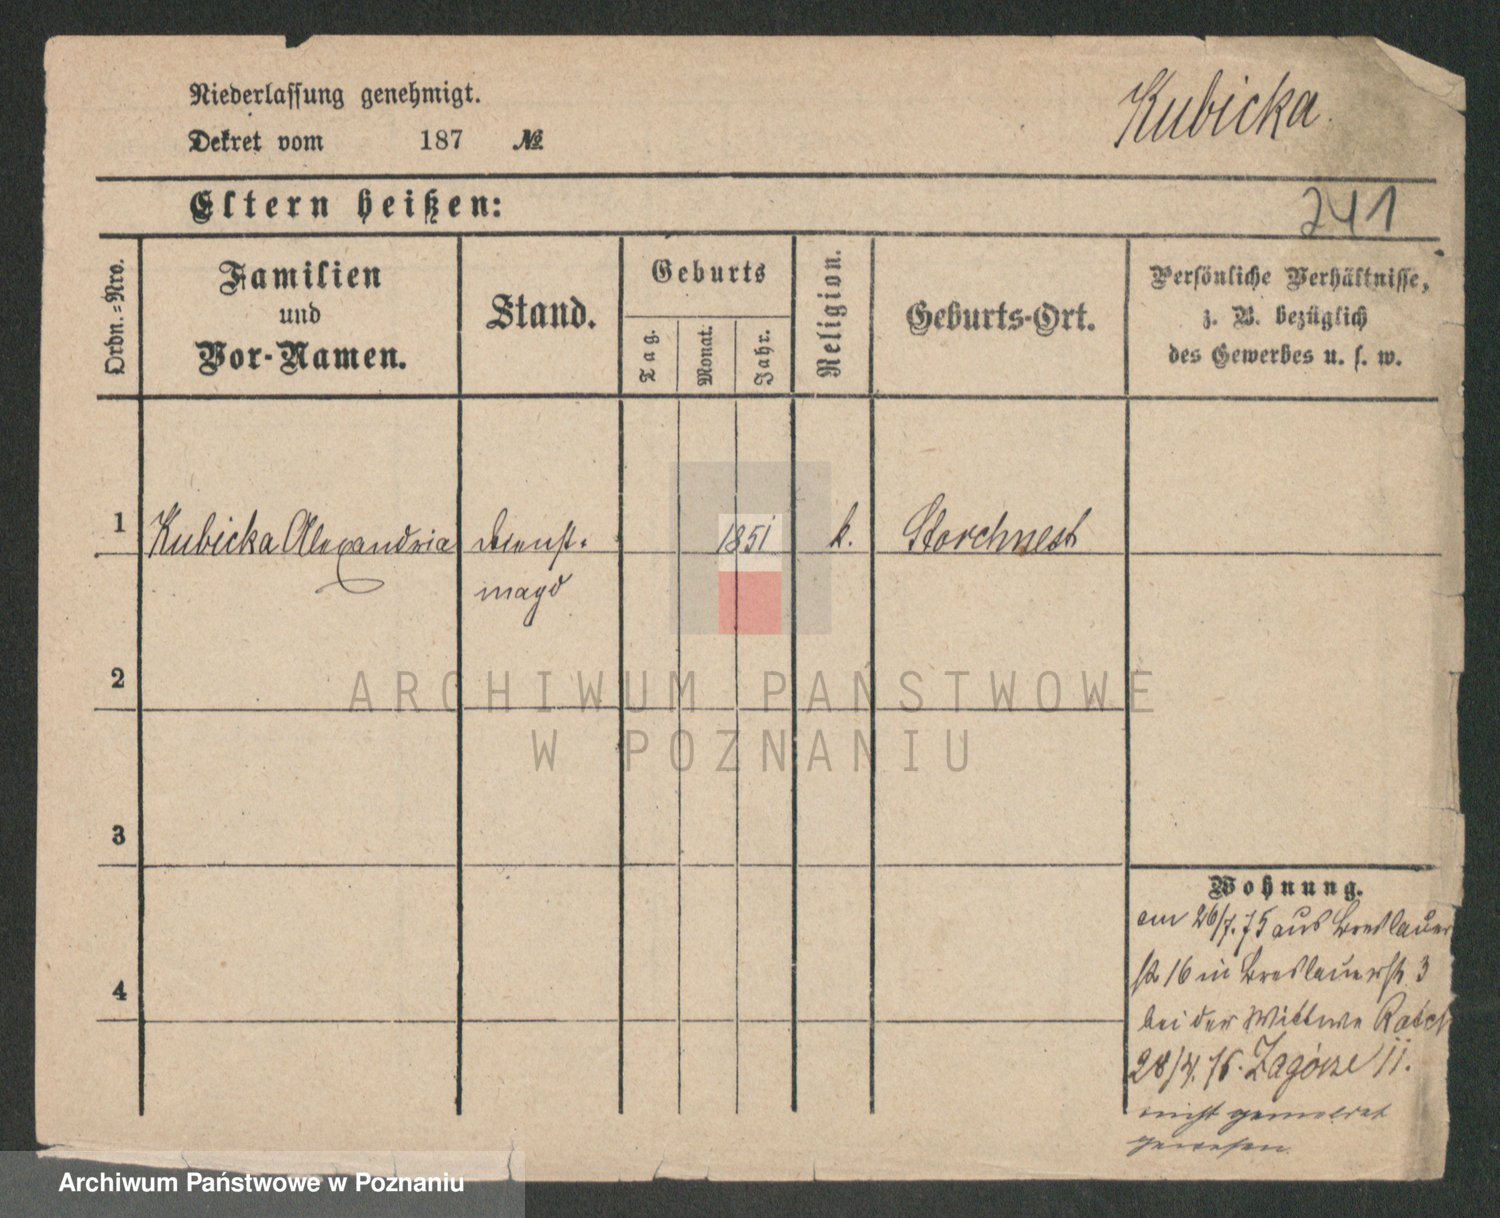 Niederlassung genehmigt.
Kubicka
Dekret vom 187 №
Eltern heißen:
241
Ordn.-Nro.
Familien
und
Vor-Namen.
Stand.
Geburts
Tag.
Monat.
Jahr.
Religion.
Geburts-Ort.
Persönliche Verhältnisse,
z. B. bezüglich
des Gewerbes u. s. w.
1 Kubicka Alexandria Dienst- 1851 k. Storchnest
magd
2
ARCHIWUM PAŃSTWOWE
W POZNANIU
3
Wohnung.
am 26/7.75 aus Breslauer
str 16 in Breslauerstr. 3
4
bei der Wittwe
28/4.76. Zagórze 11.
nicht gemeldet
gewesen
Archiwum Państwowe w Poznaniu